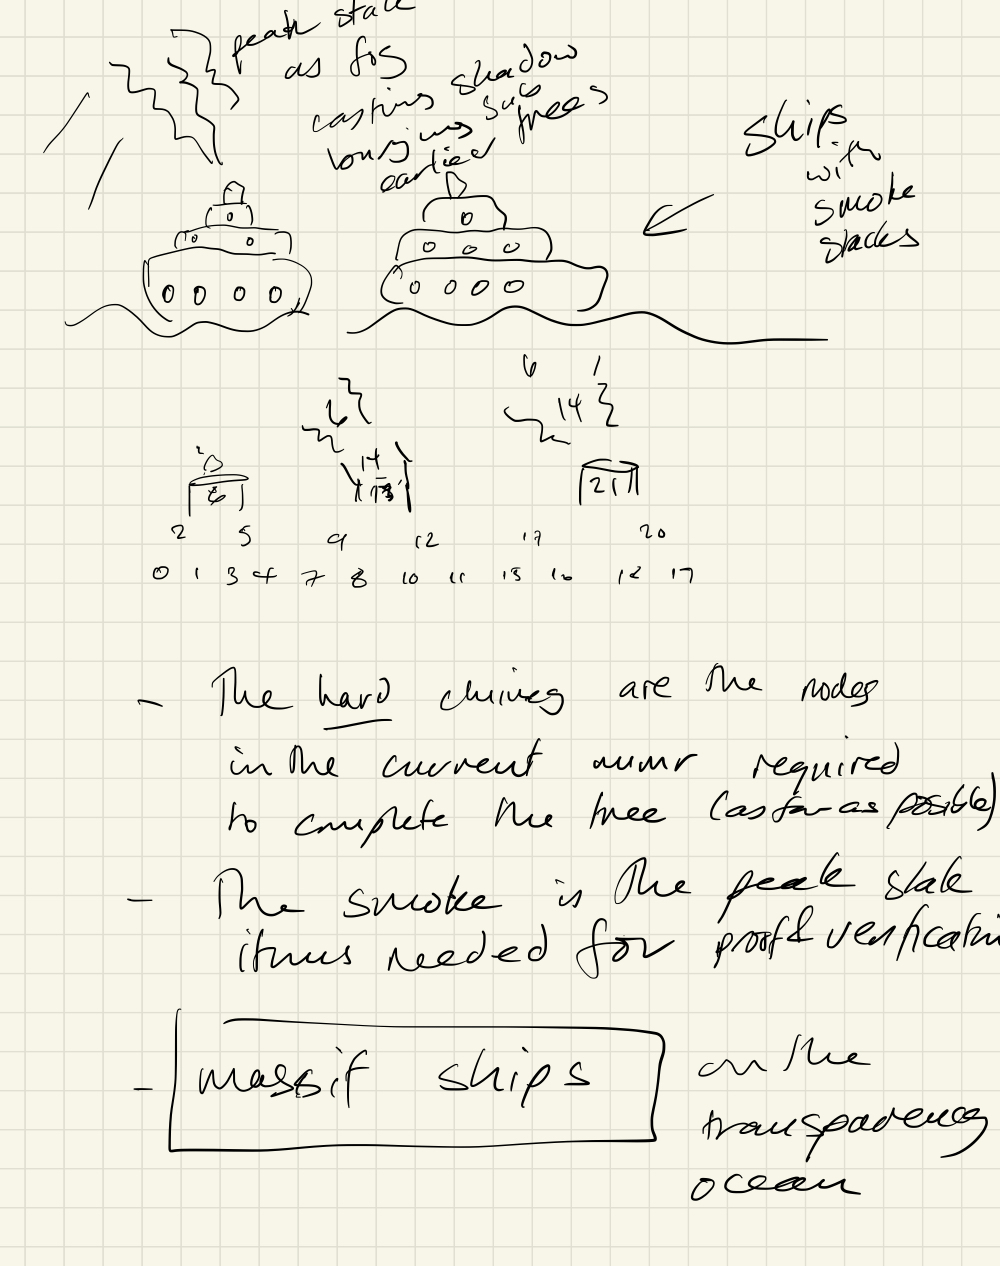 peak stack
as fog
casting shadow
longing sub trees
earlied
ships
with
smoke
stacks
6 1
6 14
14
2
6 21
2 5 9 12 17 20
0 1 3 4 7 8 10 11 15 16 18 19
- The hard chines are the nodes
in the current mmr required
to complete the tree (as far as possible)
- The smoke is the peak stak
items needed for proof & verificatin
- massif ships
on the
transparency
ocean